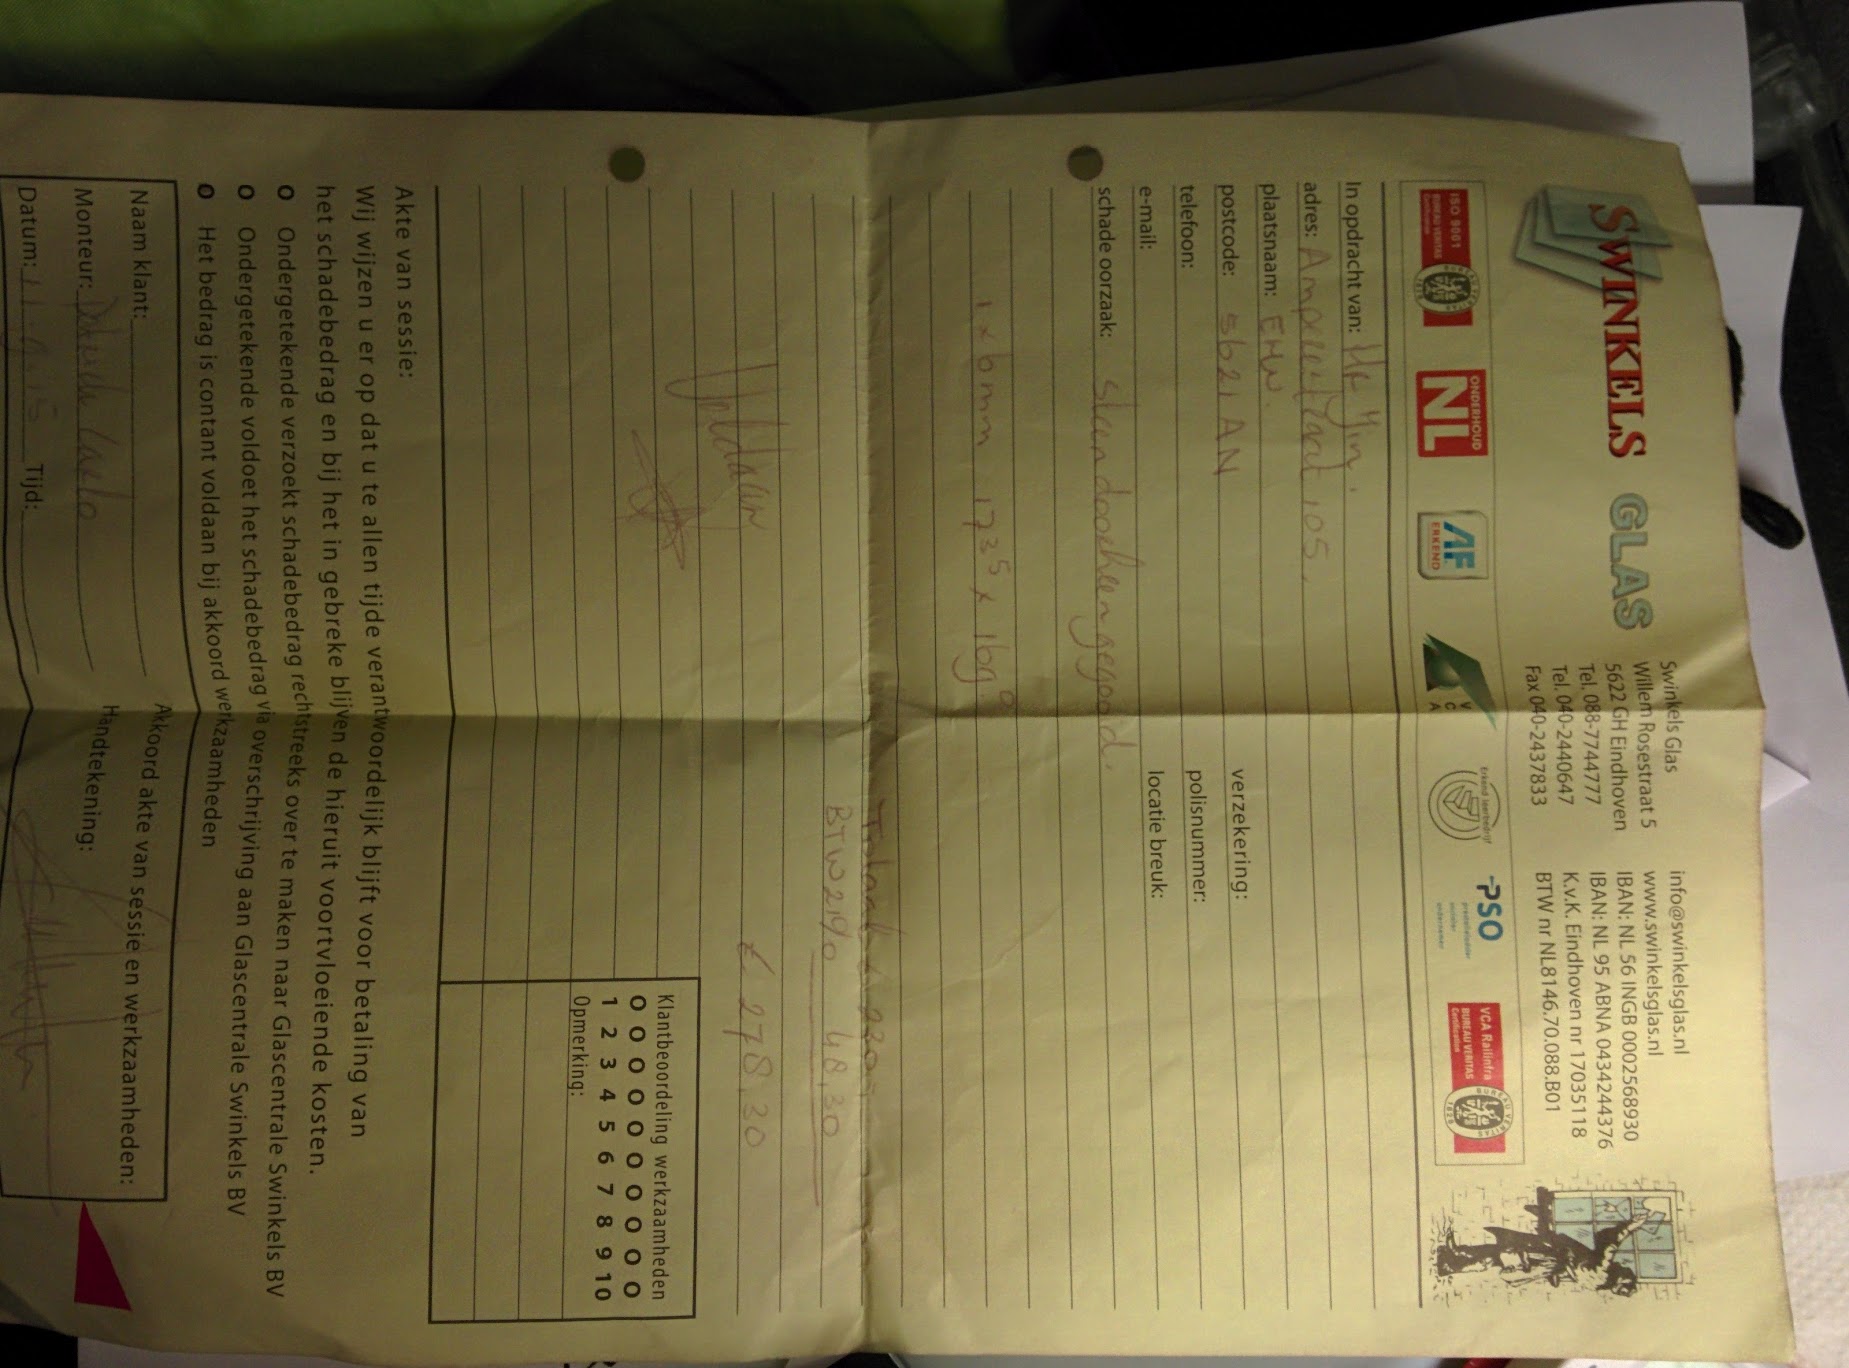 SWINKELS GLAS
Swinkels Glas
Willem Rosestraat 5
5622 GH Eindhoven
Tel. 088-7744777
Tel. 040-2440647
Fax 040-2437833
info@swinkelsglas.nl
www.swinkelsglas.nl
IBAN: NL 56 INGB 0002568930
IBAN: NL 95 ABNA 0434244376
K.v.K. Eindhoven nr 17035118
BTW nr NL8146.70.088.B01
ISO 9001
BUREAU VERITAS
Certification
ONDERHOUD
NL
AF
ERKEND
VCA
Erkend leerbedrijf
PSO
VCA Railinfra
BUREAU VERITAS
Certification
In opdracht van: Hr Yin.
adres: Ampèrestraat 105.
plaatsnaam: EHV.
postcode: 5621 AN
verzekering:
telefoon:
polisnummer:
e-mail:
locatie breuk:
schade oorzaak: Steen doorheen gegooid.
1 x 6mm 173⁵ x 169⁰
Totaal € 230,-
BTW 21% 48,30
€ 278,30
Voldaan
Klantbeoordeling werkzaamheden
O O O O O O O O O O
1 2 3 4 5 6 7 8 9 10
Opmerking:
Akte van sessie:
Wij wijzen u er op dat u te allen tijde verantwoordelijk blijft voor betaling van
het schadebedrag en bij het in gebreke blijven de hieruit voortvloeiende kosten.
O Ondergetekende verzoekt schadebedrag rechtstreeks over te maken naar Glascentrale Swinkels BV
O Ondergetekende voldoet het schadebedrag via overschrijving aan Glascentrale Swinkels BV
O Het bedrag is contant voldaan bij akkoord werkzaamheden
Naam klant:
Akkoord akte van sessie en werkzaamheden:
Monteur:
Handtekening:
Datum:
Tijd: